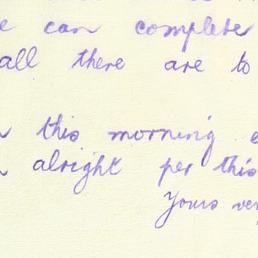 can complete
all there are to
this morning
alright per this
Yours